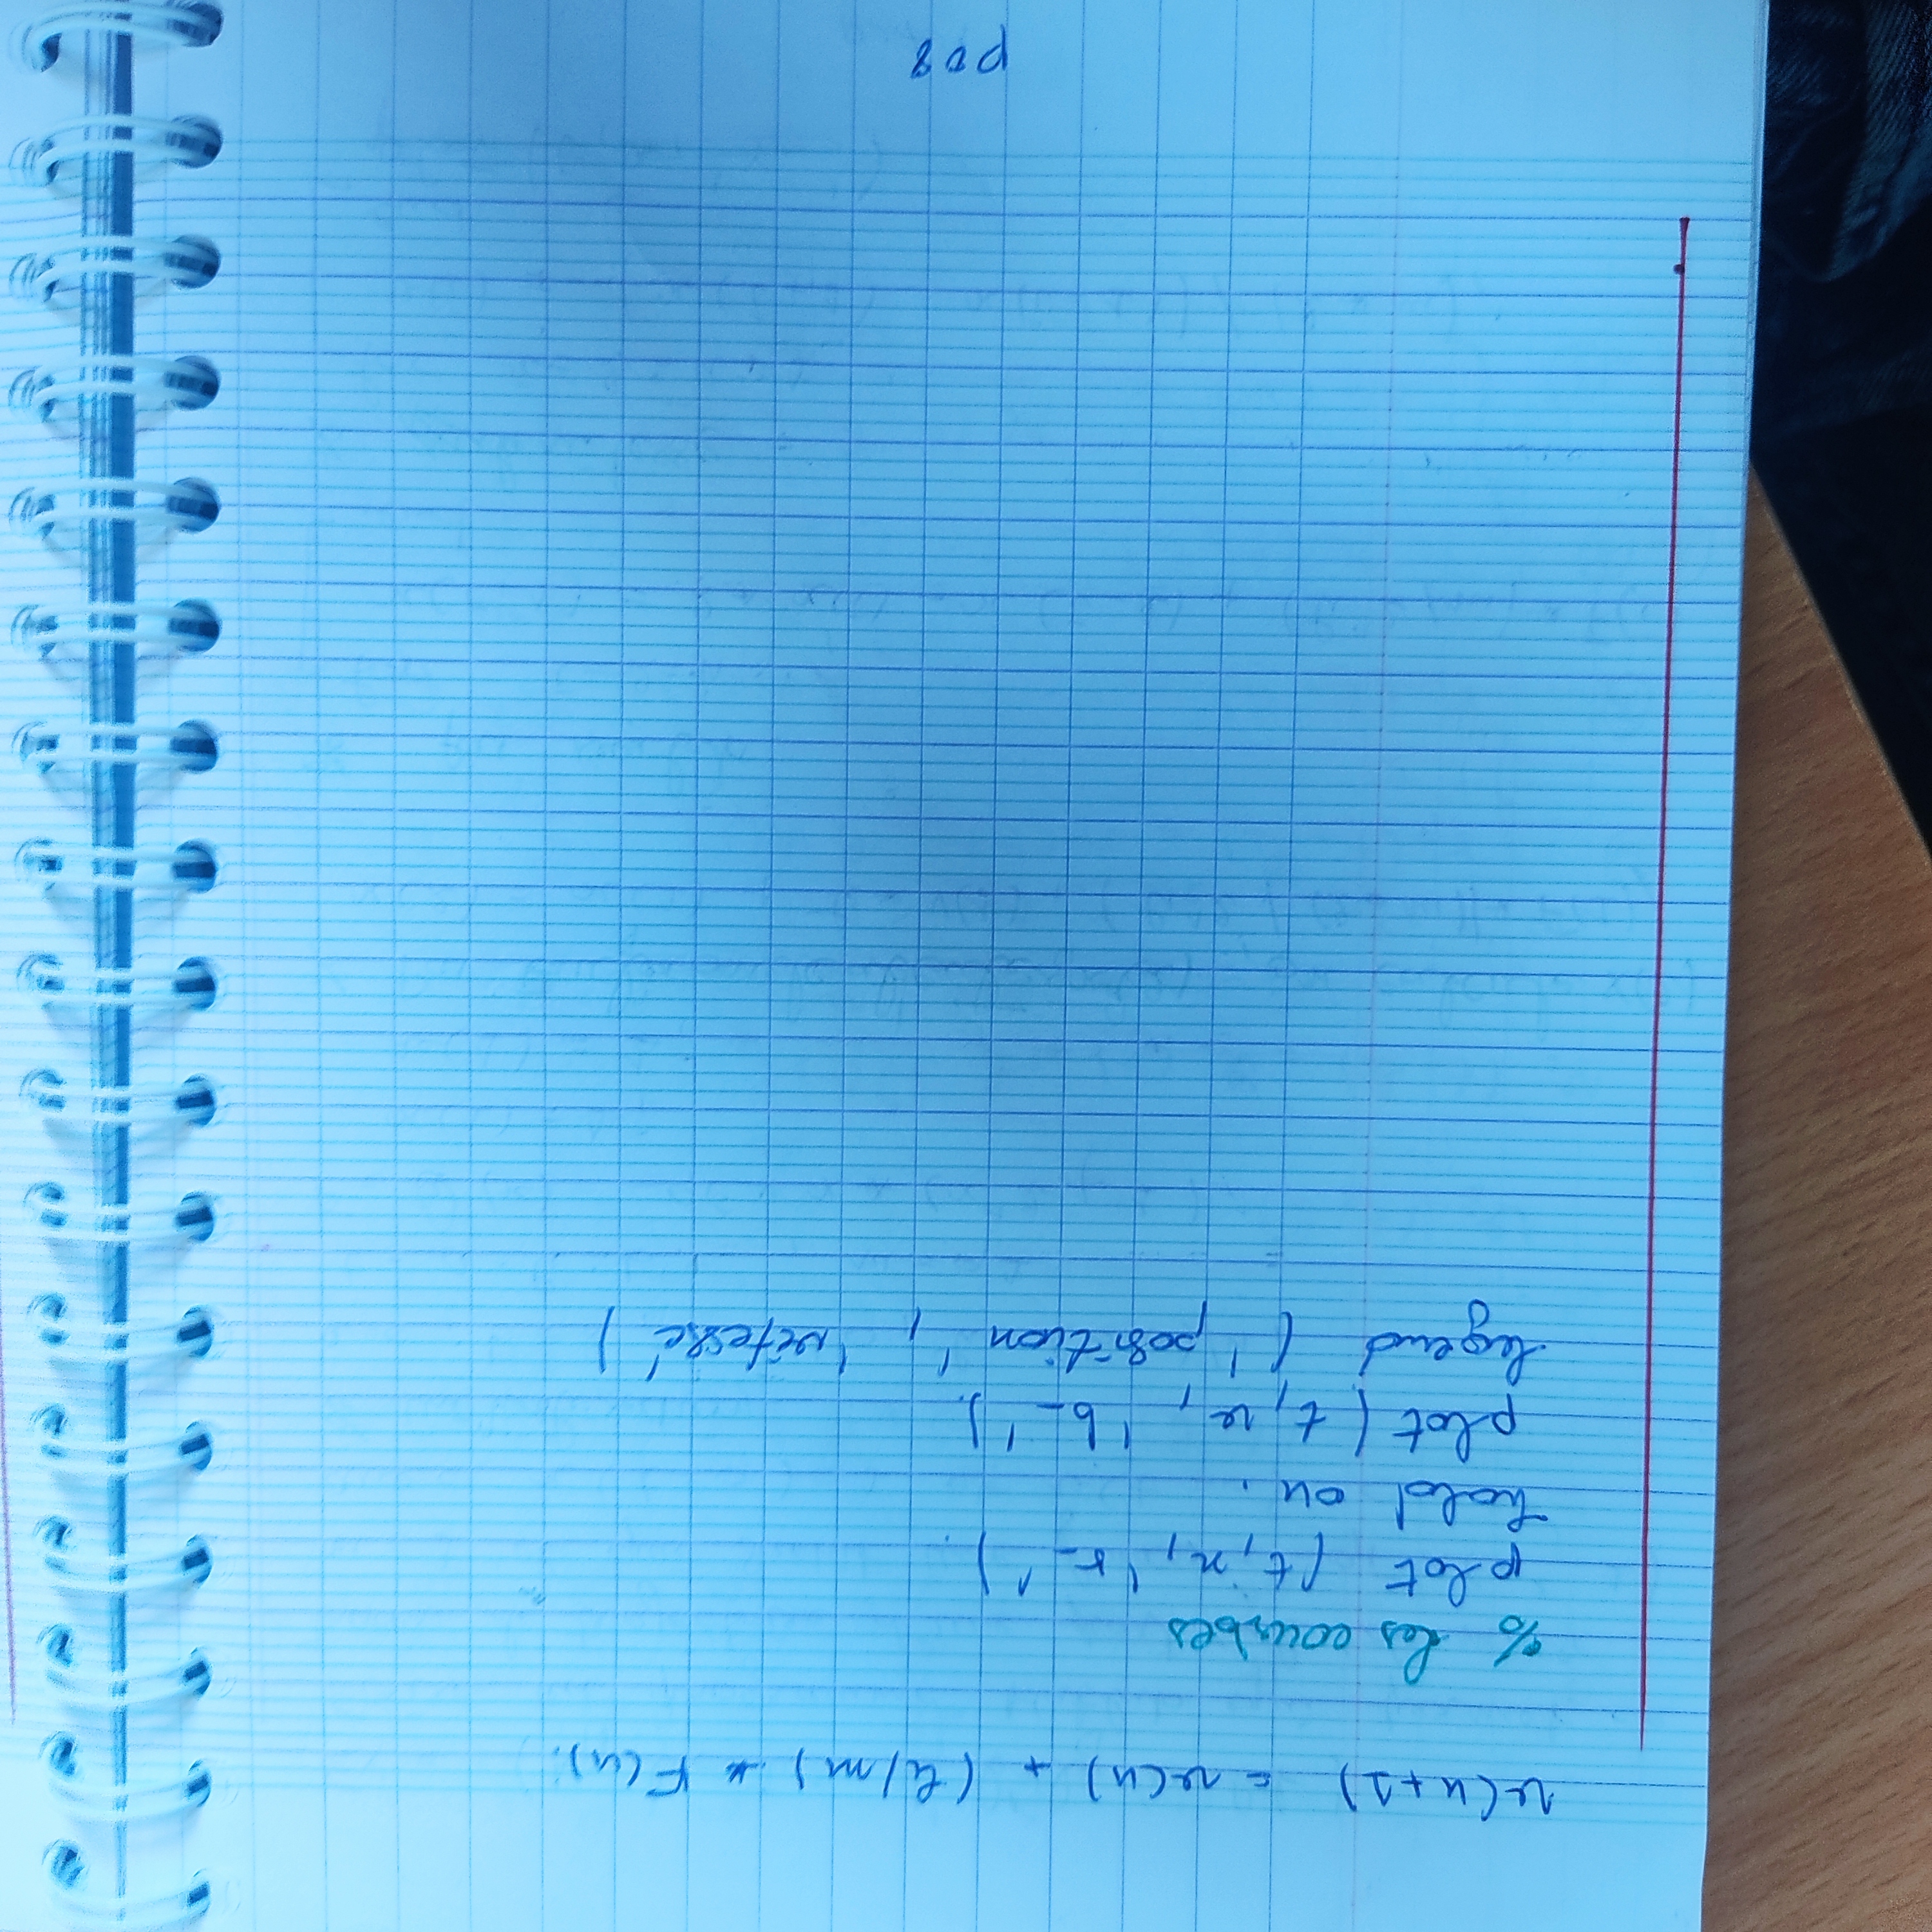 v(n+1) = v(n) + (h/m) * F(n).
% les courbes
plot (t, x, 'r-').
hold on.
plot (t, v, 'b-').
legend ('position', 'vitesse')
p08